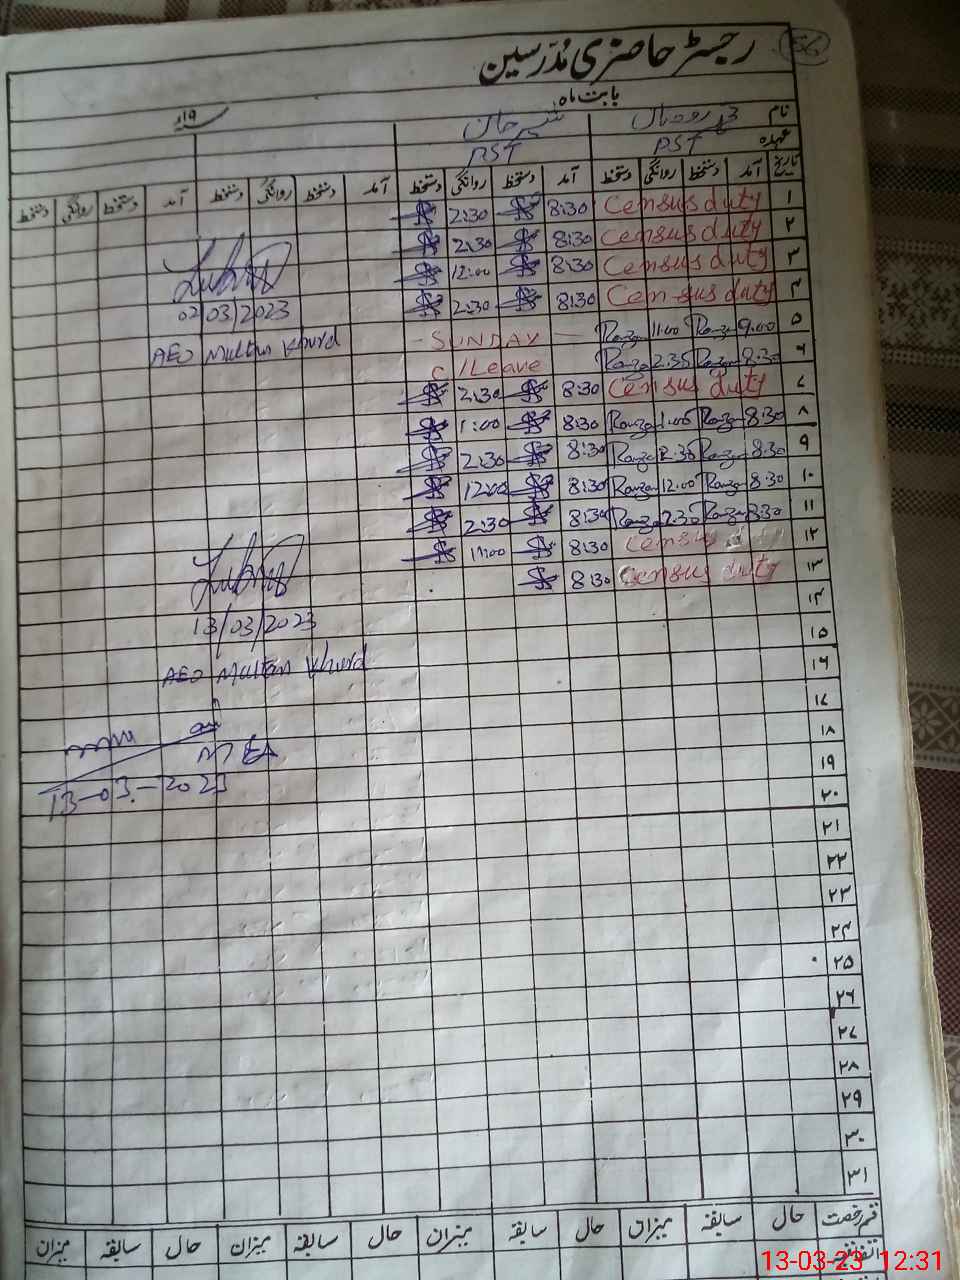 56
رجسٹر حاضری مدرسین
بابت ماہ
سنہ ۱۹ء
نام شیر خان
عہدہ PST PST
تاریخ آمد دستخط روانگی دستخط آمد دستخط روانگی دستخط آمد دستخط روانگی دستخط آمد دستخط روانگی دستخط
۱ Census duty 8:30 2:30
۲ Census duty 8:30 2:30
۳ Census duty 8:30 12:00
۴ Census duty 8:30 2:30
02/03/2023
۵ 9:00 11:00 SUNDAY
AEO Multan Khurd
۶ 8:30 2:35 C/Leave
۷ Census duty 8:30 2:30
۸ 8:30 1:00 8:30 1:00
۹ 8:30 2:30 8:30 2:30
۱۰ 8:30 12:00 8:30 12:00
۱۱ 8:30 2:30 8:30 2:30
۱۲ Census 8:30 11:00
۱۳ Census duty 8:30
13/03/2023
۱۴
۱۵
AEO Multan Khurd
۱۶
۱۷
۱۸
MEA
۱۹
13-03-2023
۲۰
۲۱
۲۲
۲۳
۲۴
۲۵
۲۶
۲۷
۲۸
۲۹
۳۰
۳۱
قسم رخصت حال سابقہ میزان حال سابقہ میزان حال سابقہ میزان حال سابقہ میزان
اتفاقیہ
13-03-23 12:31